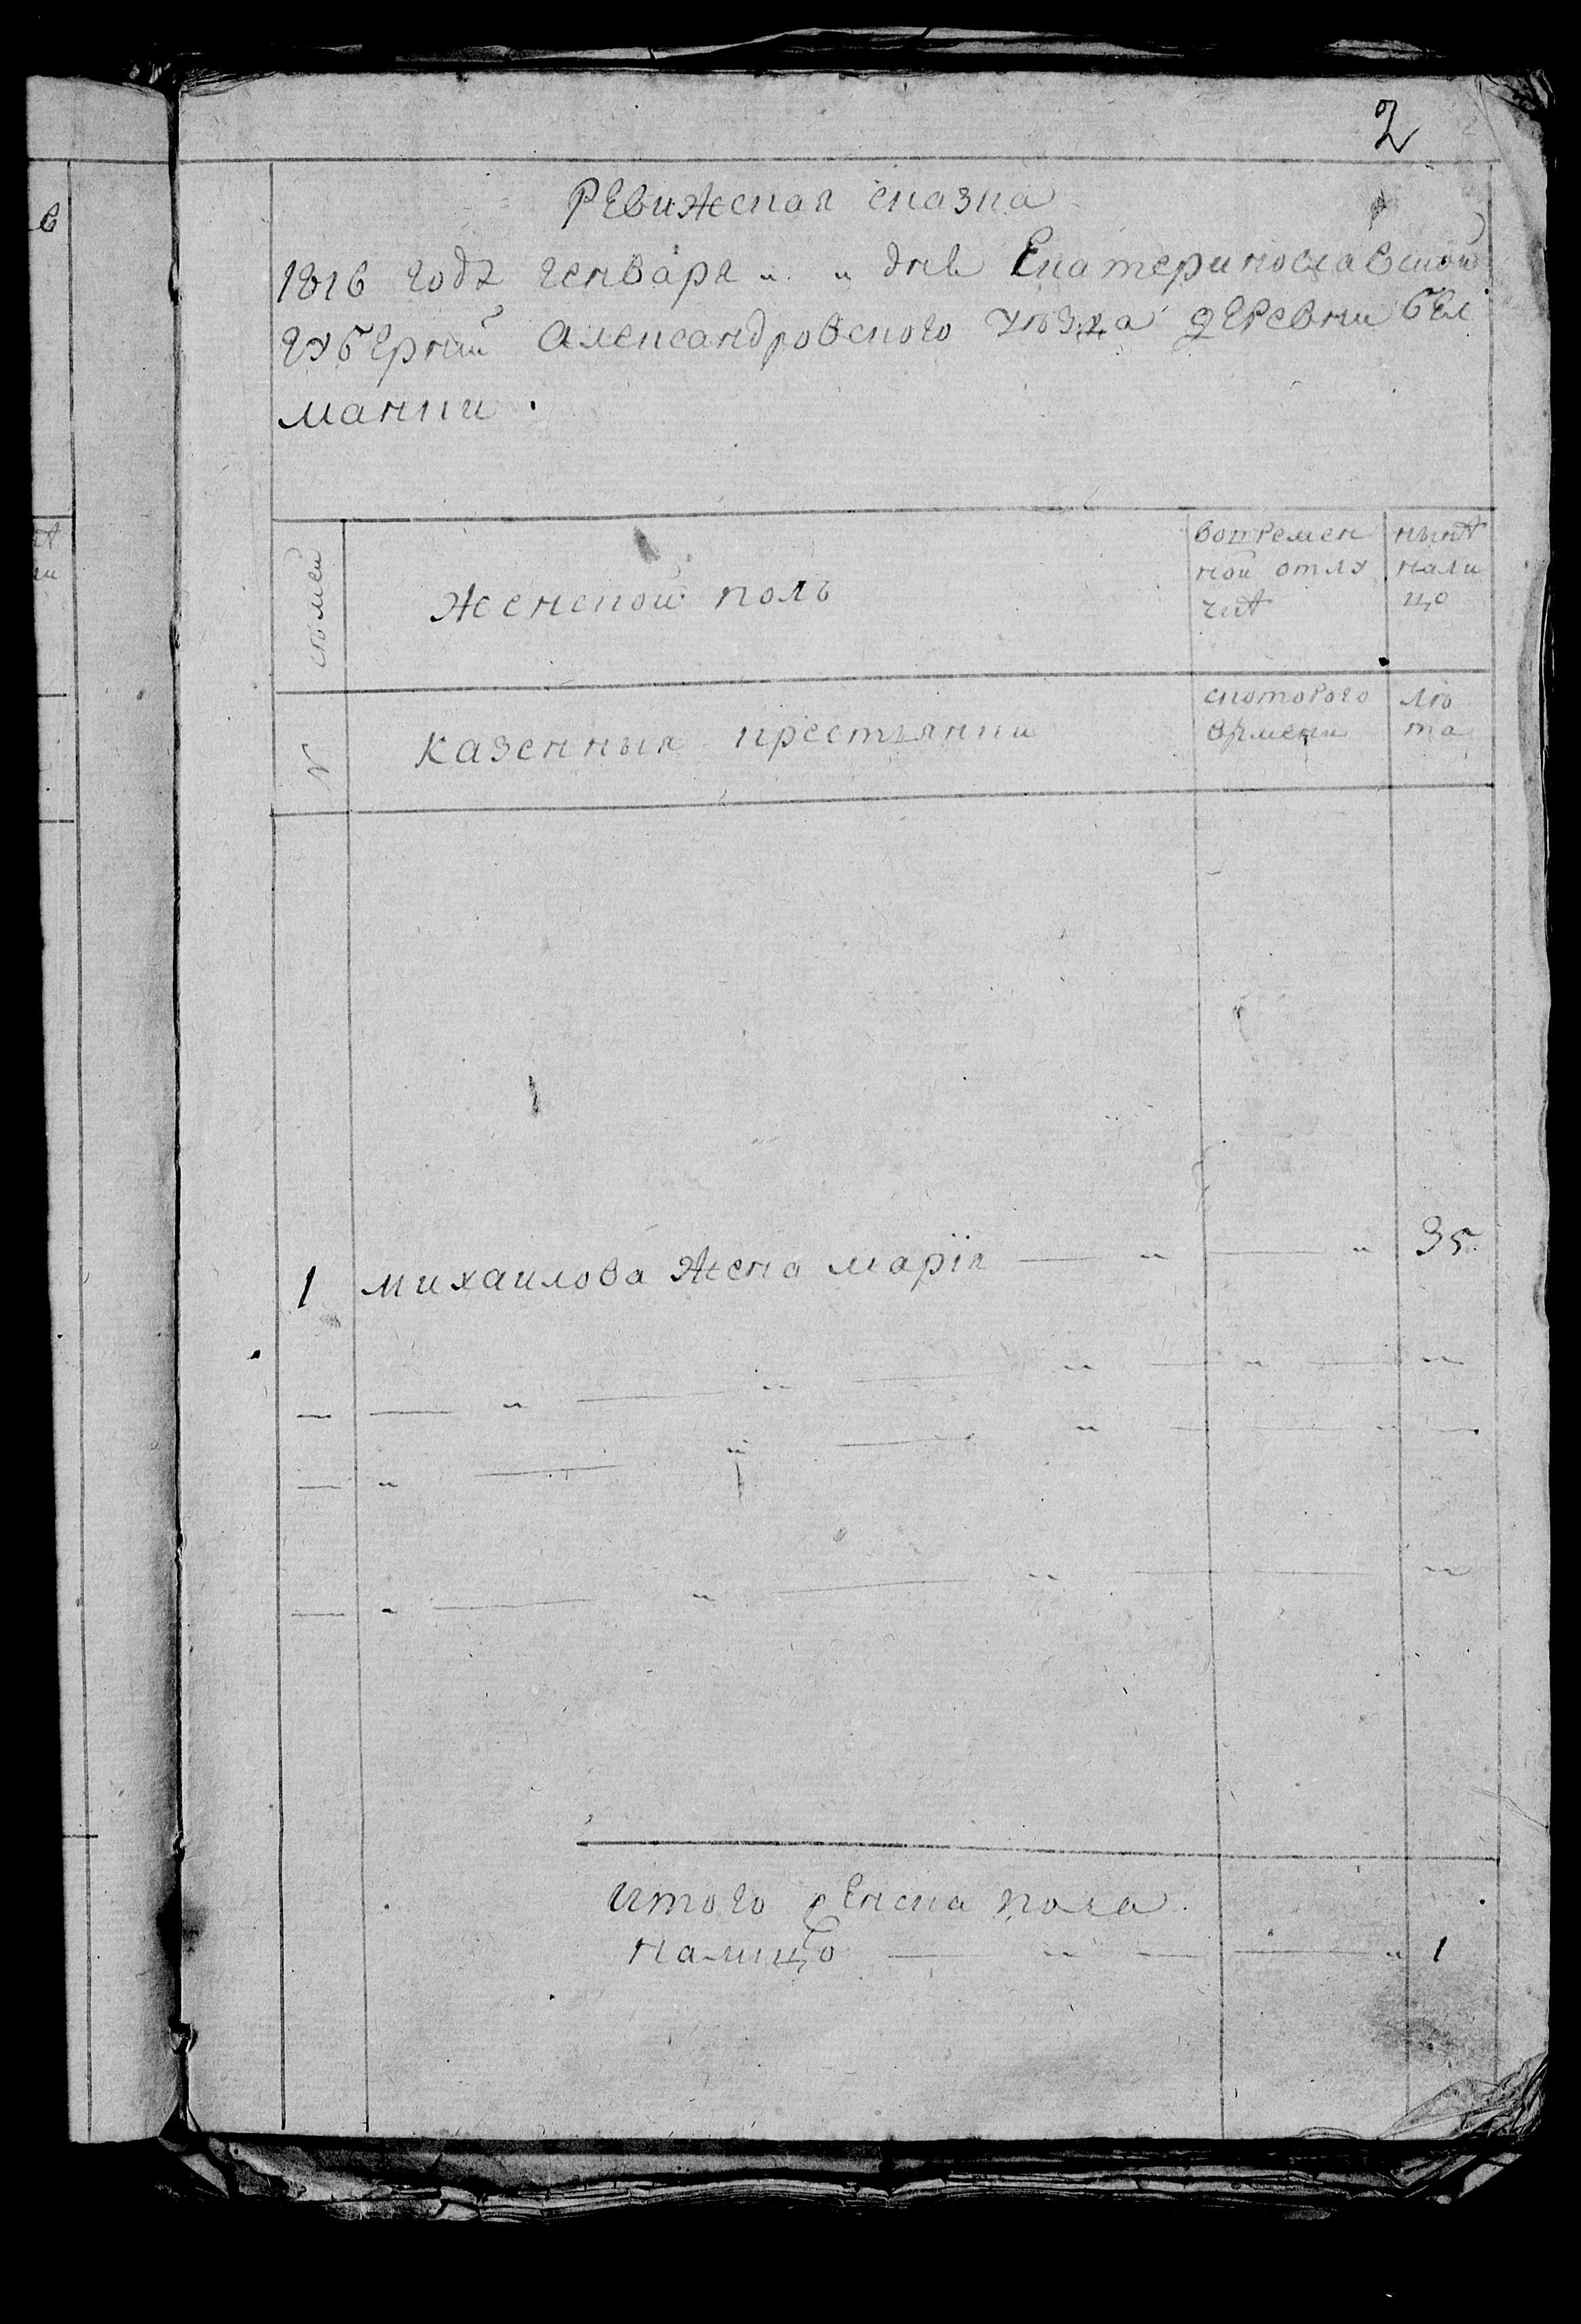 2
Ревижская сказка
1816 года генваря " " дня Екатеринославской
губерний Александровского уезда деревни Бел
манки.
семей
Женской полъ
вовремен
ной отлу
чкѣ
нынѣ
нали
цо
№
Казенныя крестьянки
скоторого
времени
лѣ
та
1 Михаилова жена Марія — " — " 35
Итого женска пола
налицо — " — — " 1